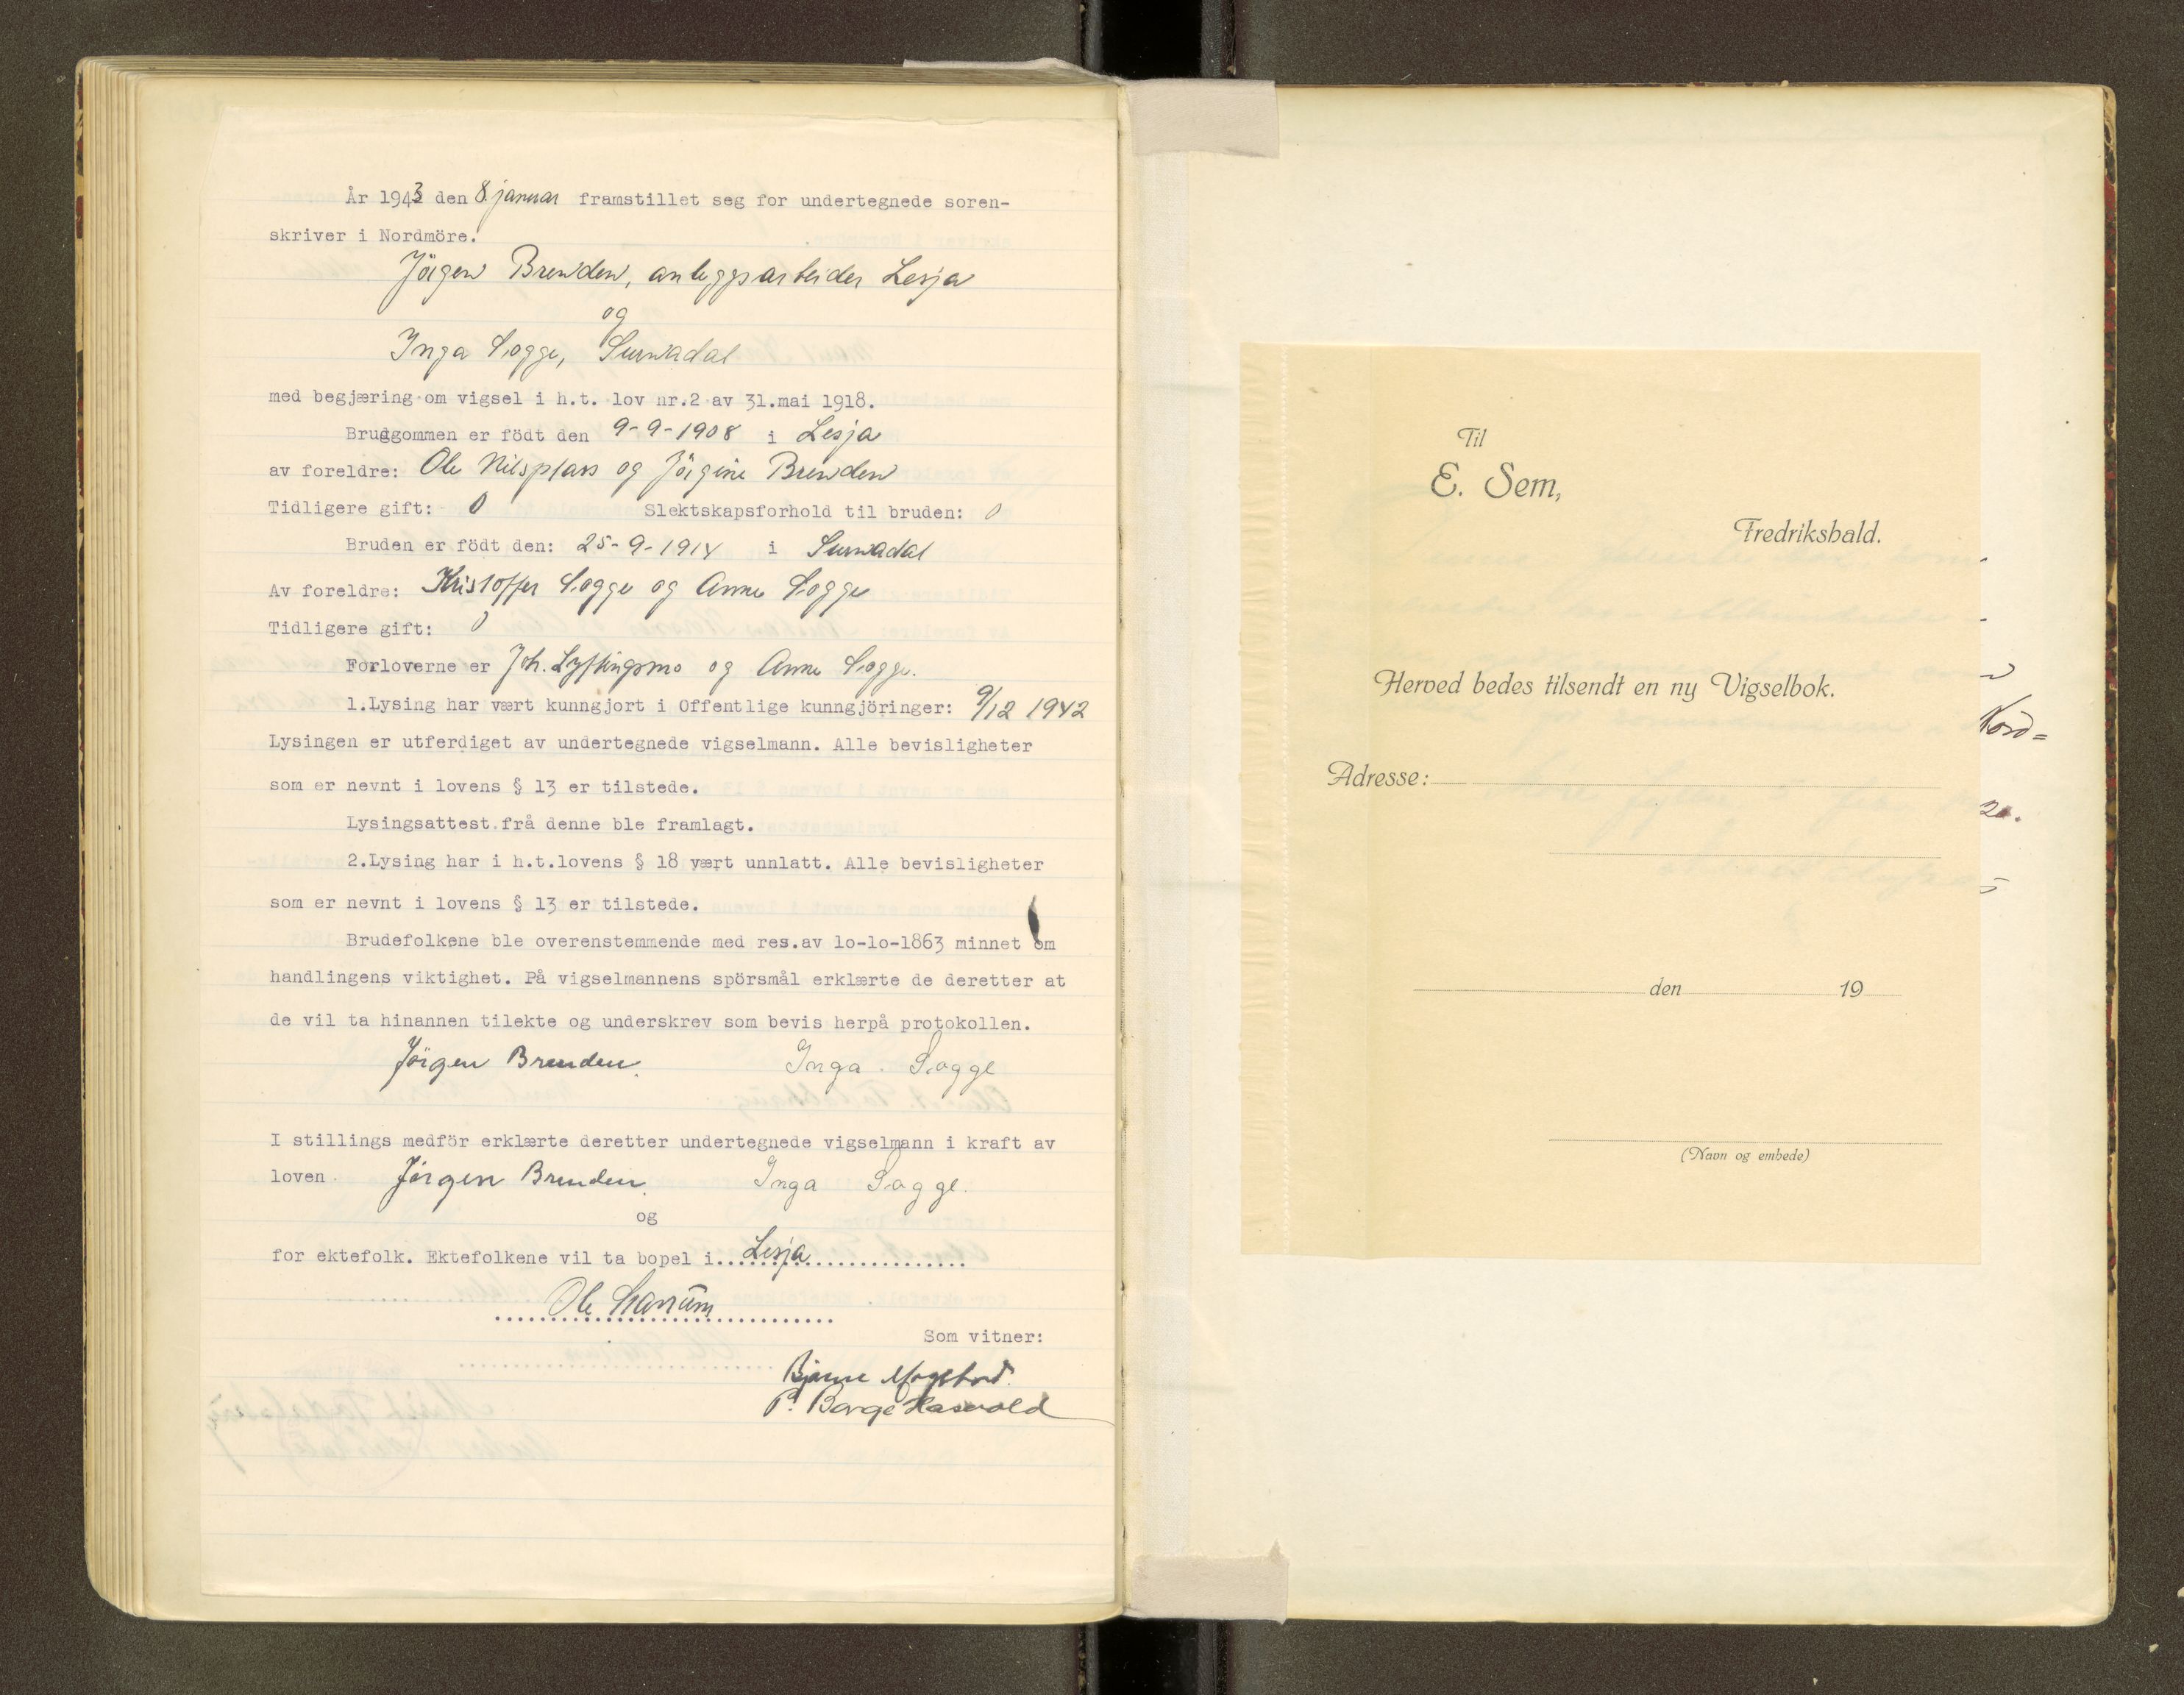 År 1943 den 8. januar framstillet seg for undertegnede soren-
skriver i Nordmöre.
Jörgen Brenden, anleggsarbeider Lesja
og
Inga Sogge, Surnadal
med begjæring om vigsel i h.t. lov nr.2 av 31.mai 1918.
Bruggommen er födt den 9-9-1908 i Lesja
av foreldre: Ole Nilsplass og Jörgine Brenden
Tidligere gift: 0 Slektskapsforhold til bruden: 0
Bruden er födt den: 25-9-1914 i Surnadal
Av foreldre: Kristoffer Sogge og Anne Sogge
Tidligere gift: 0
Forloverne er Joh. Lyftingsmo og Anne Sogge.
1.Lysing har vært kunngjort i Offentlige kunngjöringer: 9/12 1942
Lysingen er utferdiget av undertegnede vigselmann. Alle bevisligheter
som er nevnt i lovens § 13 er tilstede.
Lysingsattest frå denne ble framlagt.
2.Lysing har i h.t.lovens § 18 vært unnlatt. Alle bevisligheter
som er nevnt i lovens § 13 er tilstede.
Brudefolkene ble overenstemmende med res.av lo-lo-1863 minnet om
handlingens viktighet. På vigselmannens spörsmål erklærte de deretter at
de vil ta hinannen tilekte og underskrev som bevis herpå protokollen.
Jörgen Brenden. Inga Sogge
I stillings medför erklærte deretter undertegnede vigselmann i kraft av
loven Jörgen Brenden. Inga Sogge.
og
for ektefolk. Ektefolkene vil ta bopel i Lesja
Ole
Som vitner:
Bjarne Mogstad.
P. Borge Hasvold
Til
E. Sem,
Fredrikshald.
Herved bedes tilsendt en ny Vigselbok.
Nord=
Adresse:
20.
den 19
(Navn og embede)